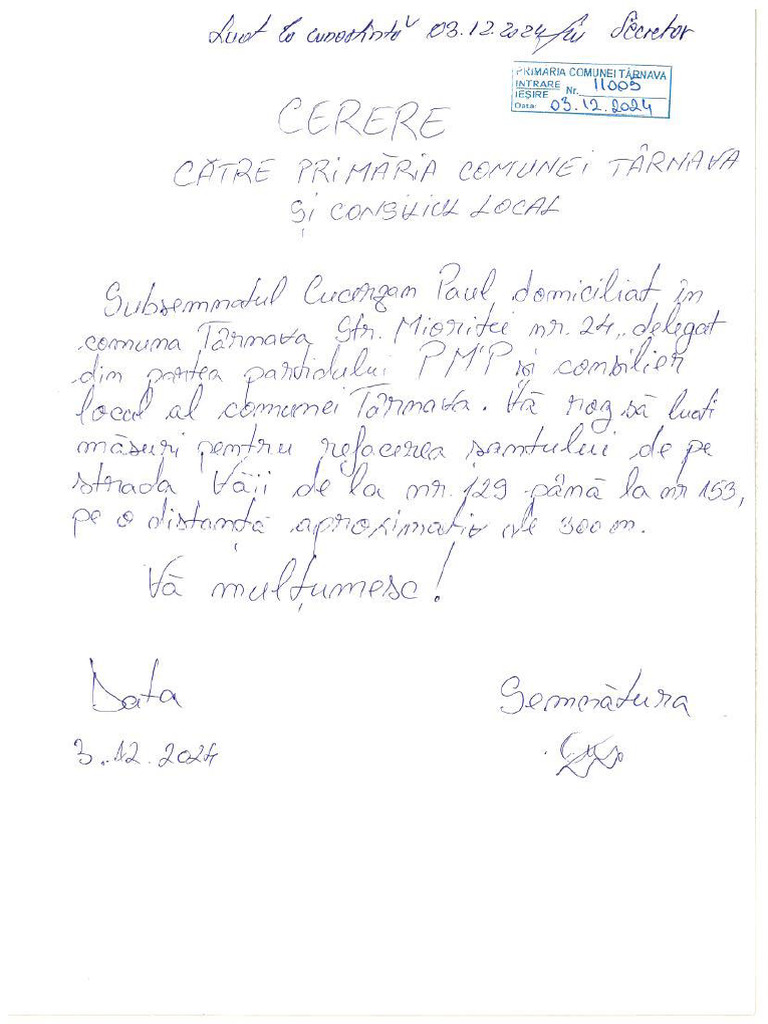 Luat la cunostintă 03.12.2024 Secretar
PRIMARIA COMUNEI TÂRNAVA
INTRARE
IEȘIRE Nr. 11005
Data: 03.12.2024
CERERE
CĂTRE PRIMĂRIA COMUNEI TÂRNAVA
ȘI CONSILIUL LOCAL
Subsemnatul Cucerzan Paul domiciliat în
comuna Târnava Str. Mioriței nr. 24, delegat
din partea partidului PMP și consilier
local al comunei Târnava. Vă rog să luați
măsuri pentru refacerea șanțului de pe
strada Văii de la nr. 129 până la nr 153,
pe o distanță aproximativ de 300 m.
Vă mulțumesc!
Data
Semnătura
3.12.2024